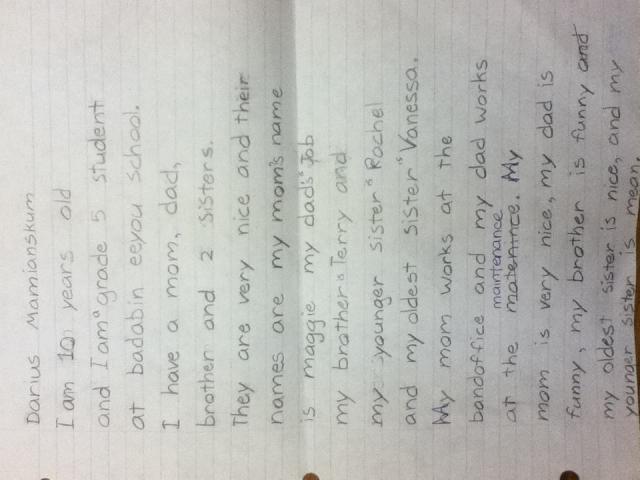 Darius Mamianskum
I am 10 years old
and I am a grade 5 student
at badabin eeyou school.
I have a mom, dad,
brother and 2 sisters.
They are very nice and their
names are my mom's name
is maggie my dad's is Job
my brother is Terry and
my younger sister is Rachel
and my oldest sister is Vanessa.
My mom works at the
bandoffice and my dad works
maintenance
at the matentnce. My
mom is very nice, my dad is
funny, my brother is funny and
my oldest sister is nice, and my
younger sister is mean.